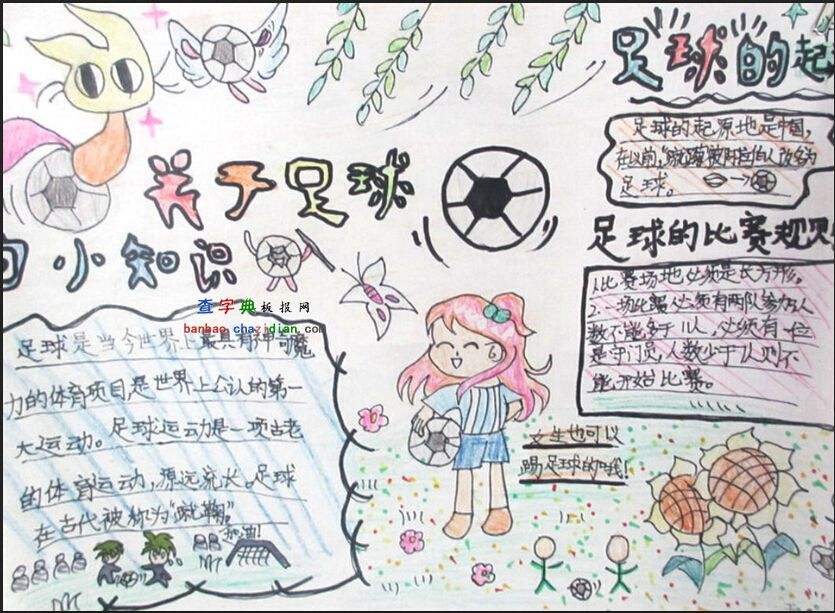 关于足球
的小知识
查字典板报网
banbao.chazidian.com
足球是当今世界上最具有神奇魔
力的体育项目是世界上公认的第一
大运动。足球运动是一项古老
的体育运动,源远流长。足球
在古代被称为“蹴鞠”。
加油!
足球的起
足球的起原地是中国,
在以前,“蹴鞠”被阿拉伯人改名为
足球。
足球的比赛规则
1.比赛场地必须是长方形。
2.一场比赛必须有两队参加,人
数不能多于11人,必须有一位
是守门员,人数少于 人则不
能开始比赛。
女生也可以
踢足球的哦!